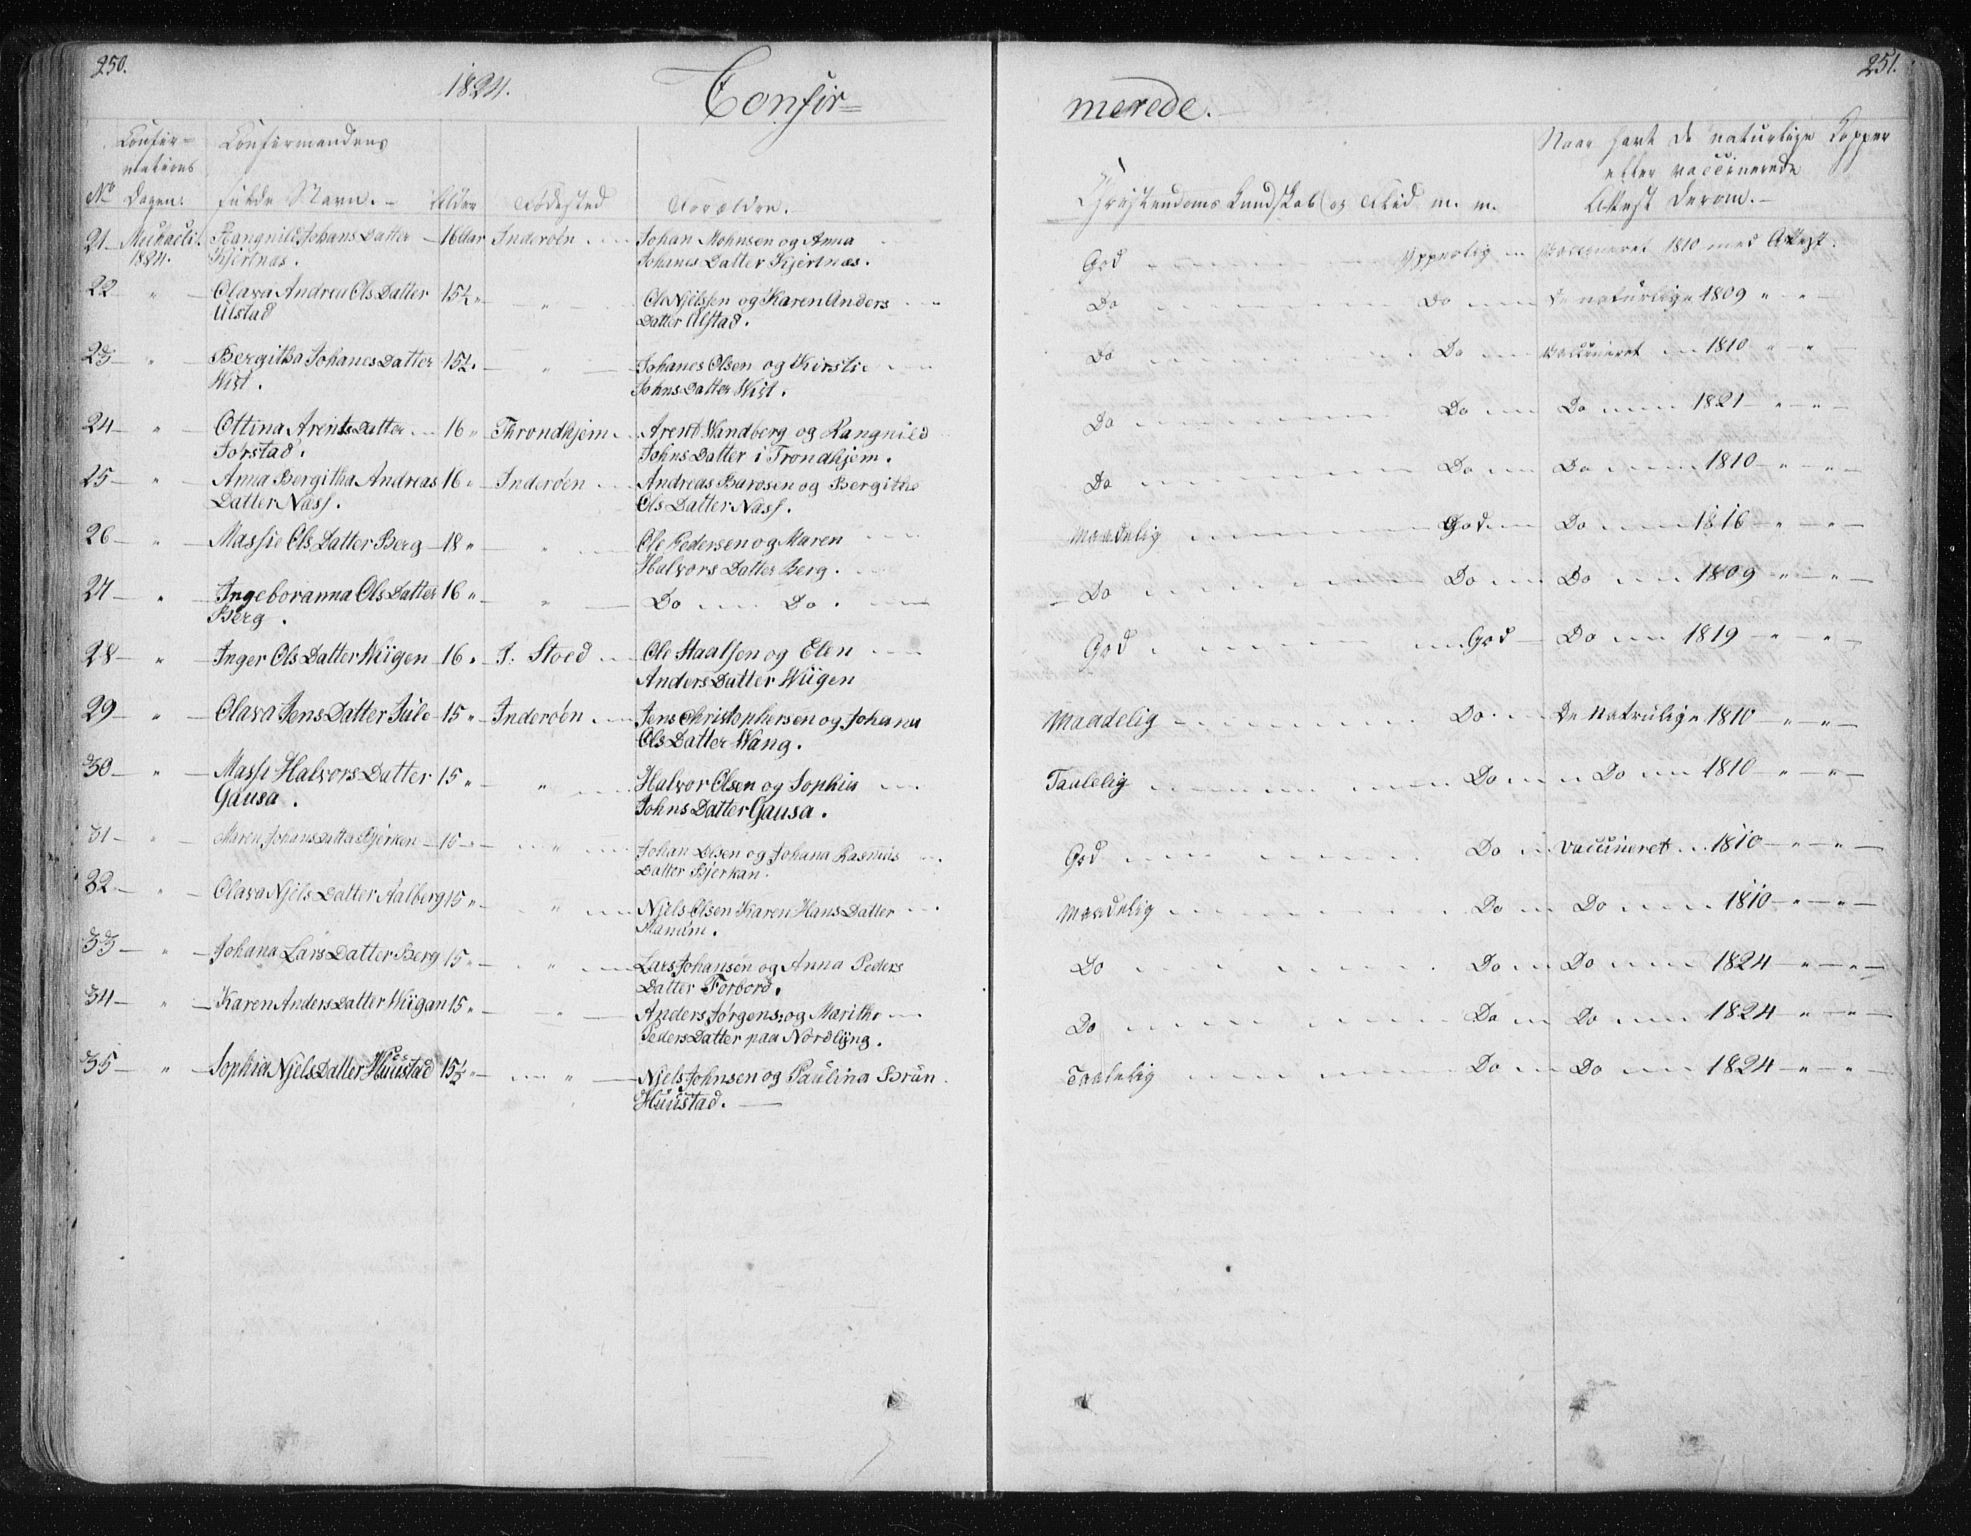 250.
1824.
Confir=
Confir=
mations
Dagen.
No
Confirmandens
fulde Navn. -
Alder
Fødested
Forældre.
21 - Michaeli 1824. Rangnild Johans Datter - 16 Aar Inderøen Johan Mohnsen og Anna
Kjertnæs. Johanes Datter Kjertnæs.
22 " - Olava Andrea Ols Datter 15½ " " Ole Njelssen og Karen Anders
Ulstad Datter Ulstad.
23 - " Bergitha Johanes Datter 15½. " Johanes Olsen og Kirstie
Wist. Johns Datter Wist.
24 - " - Ottina Arents Datter 16 " Throndhjem Arent Wandberg og Rangnild
Forstad. Johns Datter i Trondhjem.
25 - " - Anna Bergitha Andreas 16 " Inderøen Andreas Barosen og Bergithe
Datter Næss. Ols Datter Næss.
26 - " - Massie Ols Datter Berg - 18 " " Ole Pedersen og Maren
Halvors Datter Berg.
27 - " - Ingeboranna Ols Datter 16 " " Do Do.
Berg.
28 - " - Inger Ols Datter Wiigen 16 " I. Stoed Ole Staalsen og Elen
Anders Datter Wiigen
29 - " - Olava Jens Datter Sule - 15 " Inderøen Jens Christophersen og Johana
Ols Datter Wang.
30 - " - Massi Halvors Datter 15 " " Halvor Olsen og Sophia
Gausa. Johns Datter Gausa.
31 - " Maren Johans Datter Bjerken - 16 " Johan Olsen og Johana Rasmus
Datter Bjerkan.
32 - " - Olava Njels Datter Aalberg 15 " " Njels Olsen Karen Hans Datter
33 - " - Johana Lars Datter Berg 15 " " Lars Johansen og Anna Peders
Datter Forbord.
34 - " - Karen Anders Datter Wiigan 15 " " Anders Jørgens: og Marithe
Peders Datter paa Nordlyng.
35 - " - Sophia Njels Datter Huustad 15½ " " Njels Johnsen og Paulina Brun
Huustad.
251.
merede.
Christendoms Kundskab og Flid m. m.
Naar havt de naturlige Kopper
eller vaccinerede
Attest derom. -
God Vaccineret 1810 med Attest.
Do Do de naturlige 1809 " - " -
Do Do Vaccineret 1810 " - " -
Do Do Do 1821 - " - " -
Do Do Do 1810 - " - " -
Maadelig God Do 1816 - " - " -
Do Do Do 1809 " - " -
God God Do 1819 " - " -
Maadelig Do De Naturlige 1810 " - " -
Taalelig Do Do 1810 " - " -
God Do Vaccineret 1810 - " - " -
Maadelig Do Do 1810 - " - " -
Do Do Do 1824 - " - " -
Do Do Do 1824 - " - " -
Taalelig Do Do 1824 - " - " -